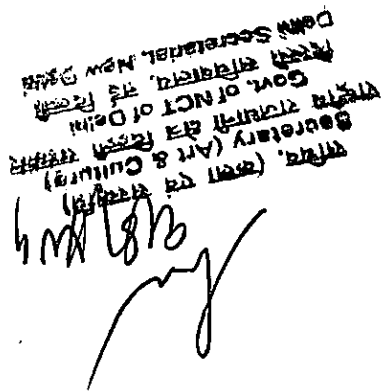 सचिव, (कला एवं संस्कृति)
Secretary (Art & Culture)
राष्ट्रीय राजधानी क्षेत्र दिल्ली सरकार
Govt. of NCT of Delhi
दिल्ली सचिवालय, नई दिल्ली
Delhi Secretariat, New Delhi